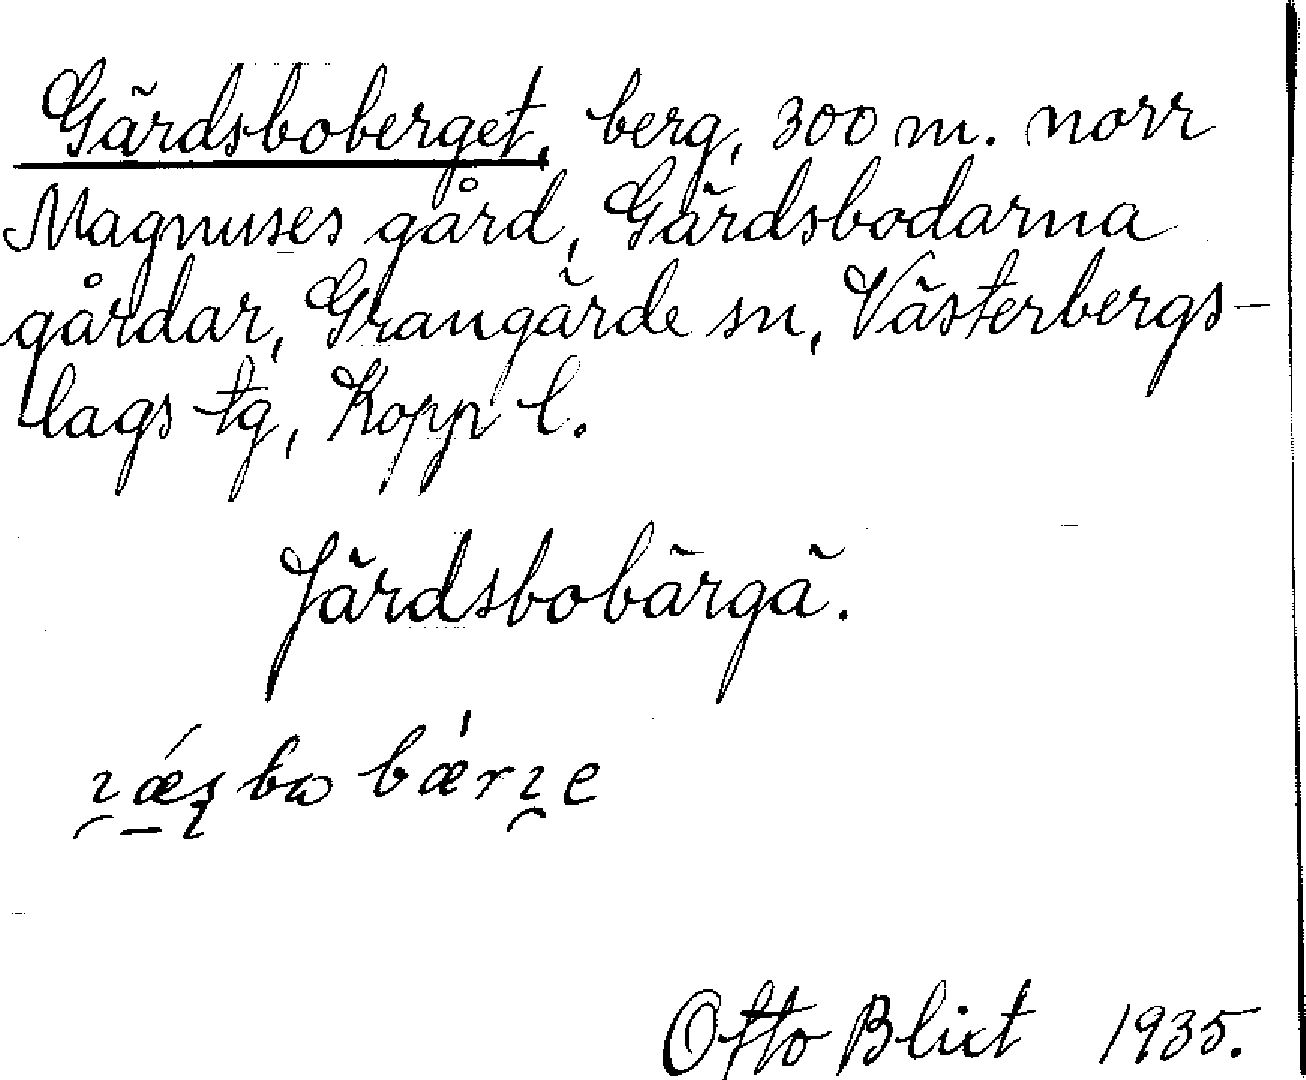 Gärdsboberget, berg, 300 m. norr
Magnuses gård, Gärdsbodarna
gårdar, Grangärde sn, Västerbergs-
lags tg, Kopp l.
Järdsbobärgä.
Otto Blixt 1935.